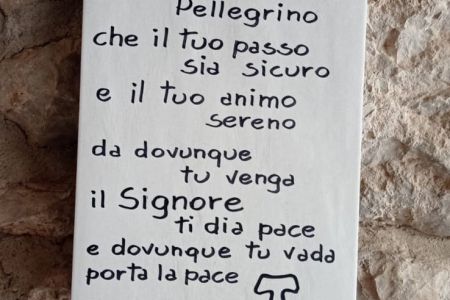 Pellegrino
che il tuo passo
sia sicuro
e il tuo animo
sereno
da dovunque
tu venga
il Signore
ti dia pace
e dovunque tu vada
porta la pace